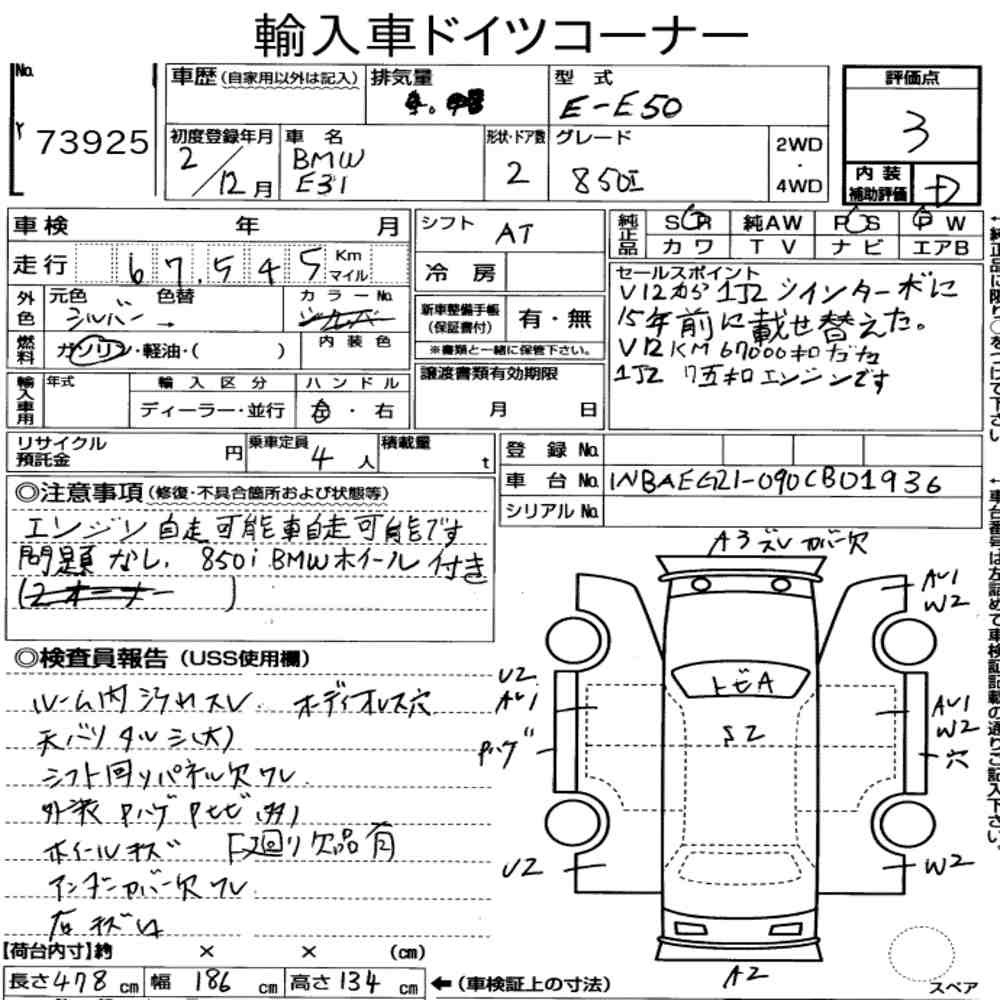 輸入車ドイツコーナー
No.
Y 73925
車歴 (自家用以外は記入)
排気量
型式
E-E50
評価点
3
初度登録年月
2/12月
車名
BMW
E31
形状・ドア数
2
グレード
850i
2WD
・
4WD
内装
補助評価
D
車検 年 月
シフト AT
純正品
SR 純AW PS PW
カワ TV ナビ エアB
走行 67,545 Km マイル
冷房
セールスポイント
V12から1J2シインターボに
15年前に載せ替えた。
V12KM 67000キロだた
1J2 7五キロエンジンです
外色
元色 色替
シルバー →
カラーNo.
シルバー
新車整備手帳
(保証書付)
有・無
※書類と一緒に保管下さい。
燃料
ガソリン・軽油・( )
内装色
輸入車用
年式
輸入区分
ディーラー・並行
ハンドル
左・右
譲渡書類有効期限
月 日
リサイクル
預託金
円
乗車定員
4人
積載量
t
登録No.
車台No. WBAEG21-090CB01936
シリアルNo.
◎注意事項 (修復・不具合箇所および状態等)
エンジン自走可能車自走可能です
問題なし. 850i BMWホイール付き
(2オーナー )
◎検査員報告 (USS使用欄)
ルーム内ヨゴレスレ ボディオレス穴
天バリタルミ(大)
シフト回りパネル欠ワレ
外装Pハゲ Pヒビ(多)
ホイールキズ F廻り欠品有
アンダーカバー欠ワレ
石キズ
A3ズレ カバー欠
AU1
W2
U2
AU1
Pハゲ
トビA
S2
AU1
W2
穴
U2
W2
A2
【荷台内寸】約 × × (cm)
長さ478cm 幅186cm 高さ134cm ←(車検証上の寸法)
スペア
←純正品に限り○をつけて下さい
←車台番号は左詰めで車検証記載の通りご記入下さい。